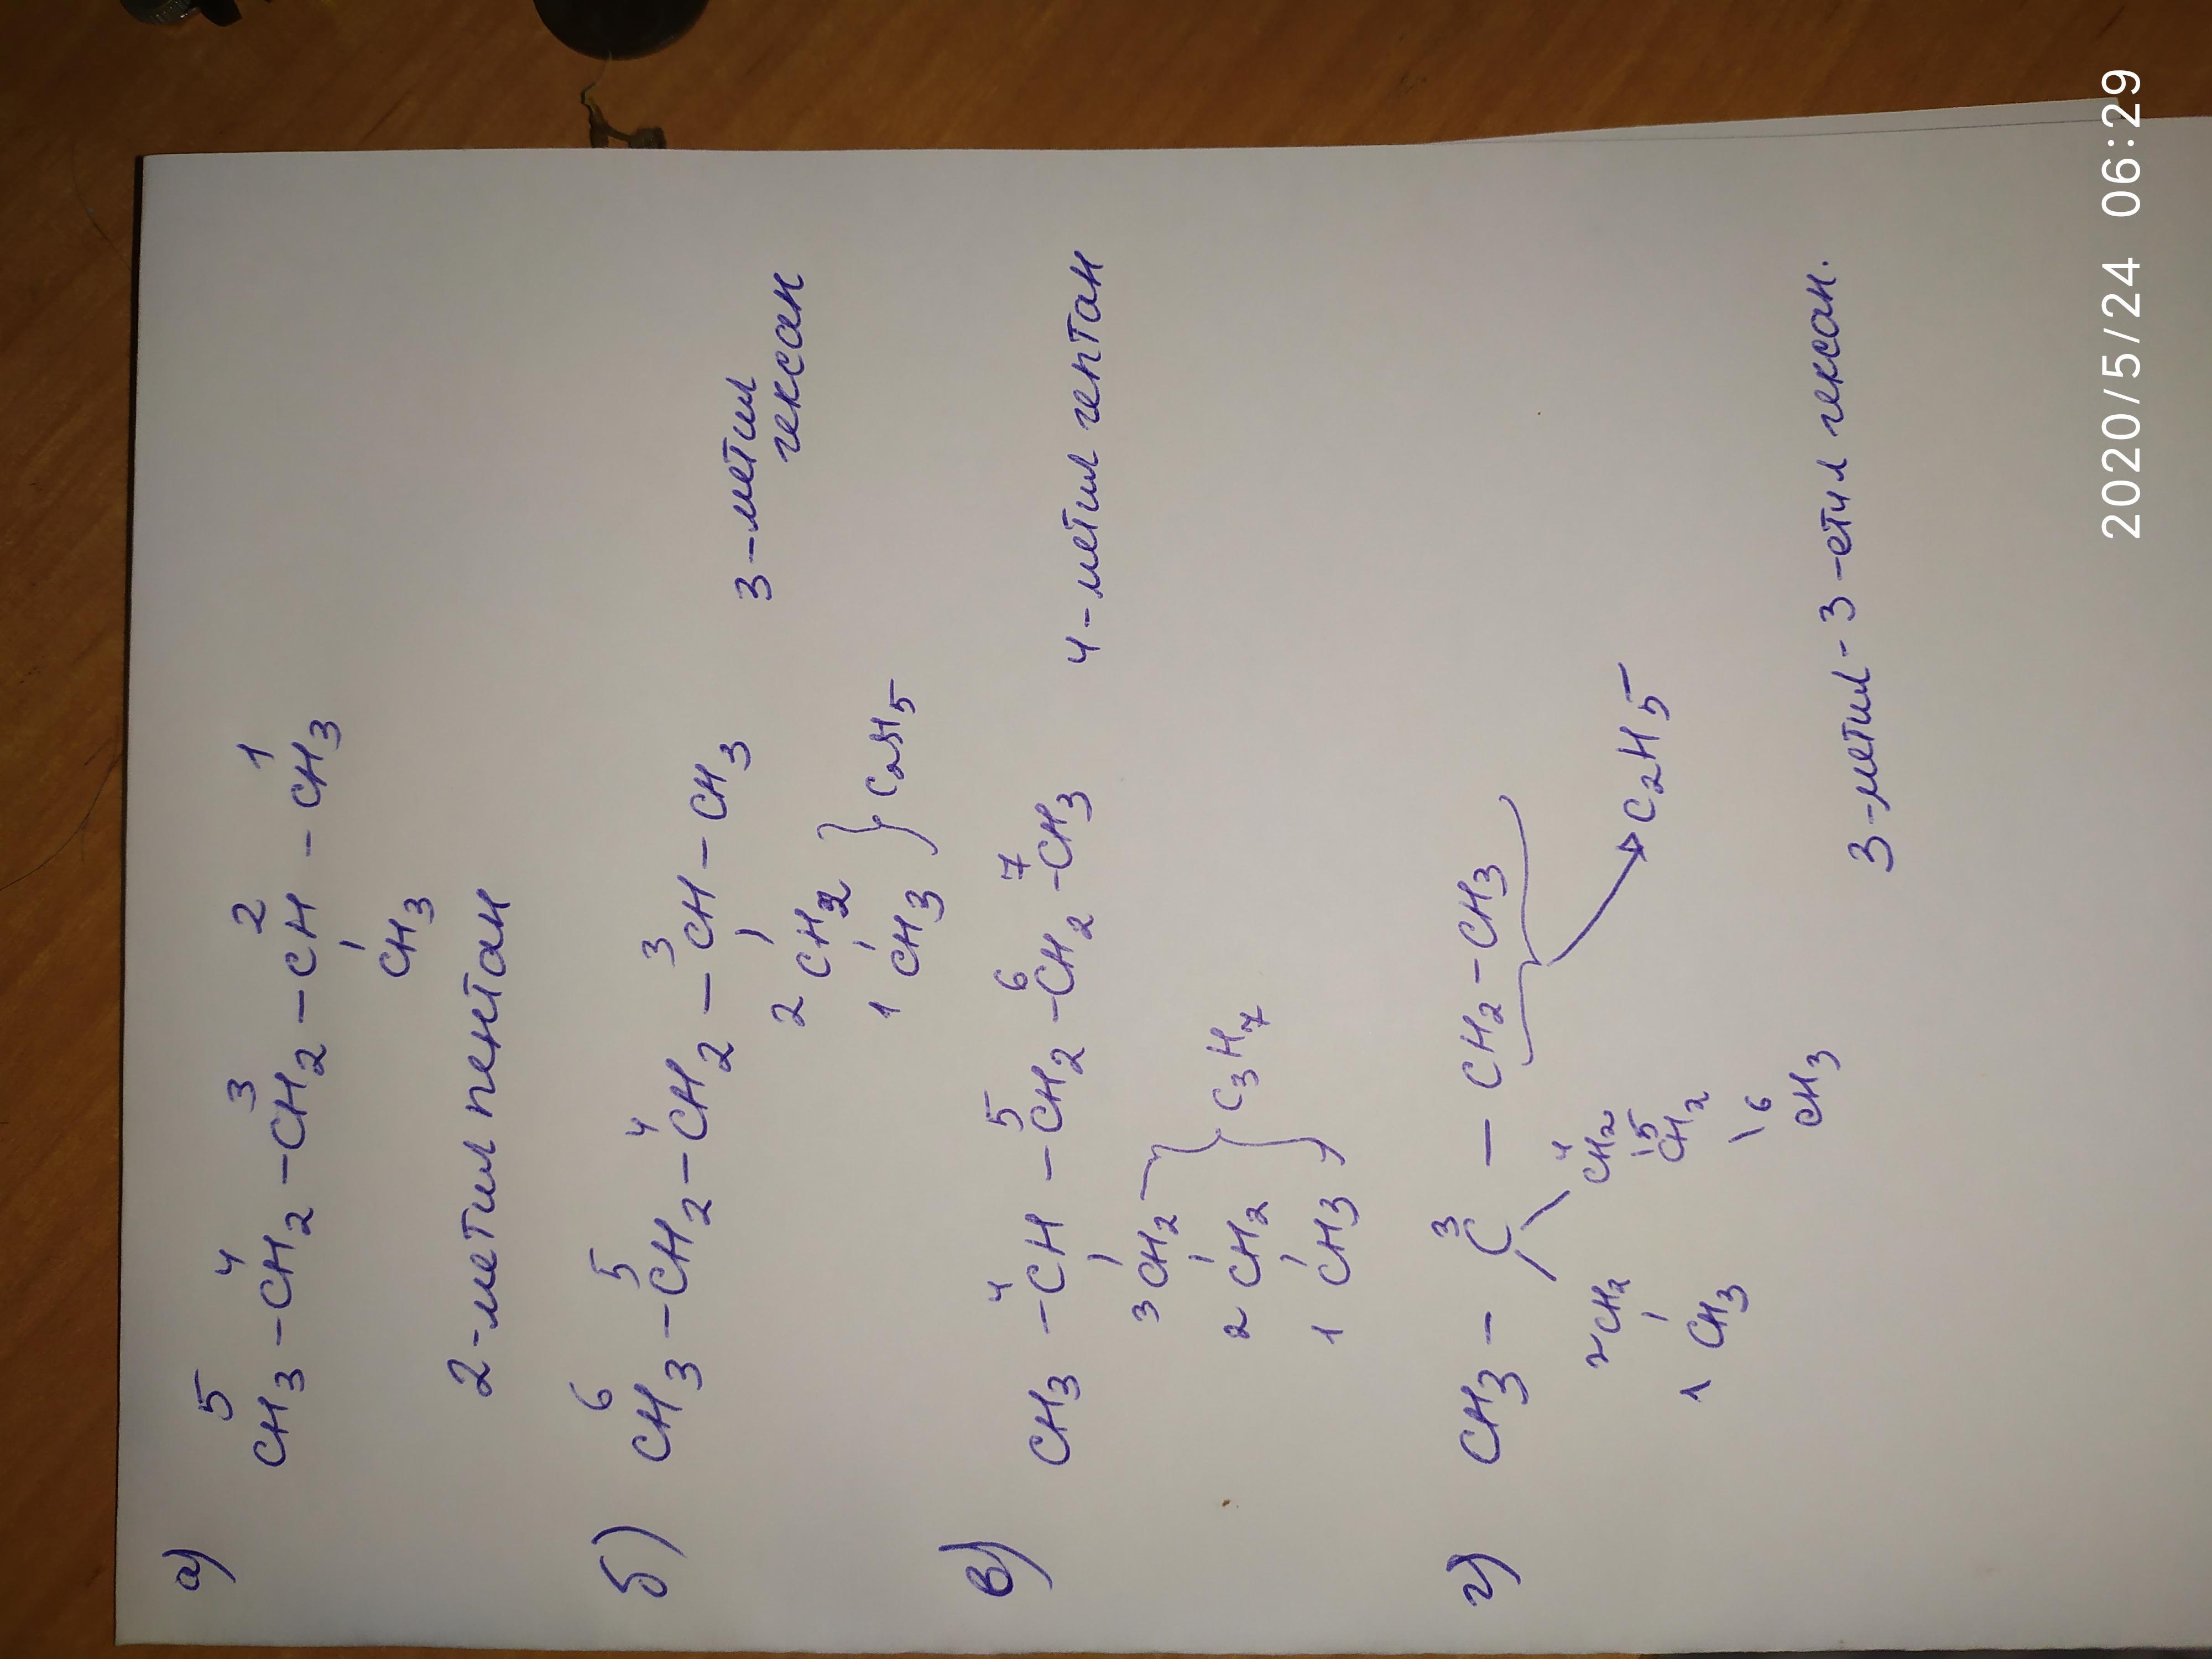 а)
5 4 3 2 1
CH3 - CH2 - CH2 - CH - CH3
CH3
2-метил пентан
б)
6 5 4 3
CH3 - CH2 - CH2 - CH - CH3
2 CH2
1 CH3 } C2H5
3-метил
гексан
в)
4 5 6 7
CH3 - CH - CH2 - CH2 - CH3
3 CH2
2 CH2 } C3H7
1 CH3
4-метил гептан
г)
3
CH3 - C - CH2 - CH3
2 CH2 4 CH2
1 CH3 5 CH2
6 CH3
C2H5
3-метил-3-етил гексан.
2020/5/24 06:29